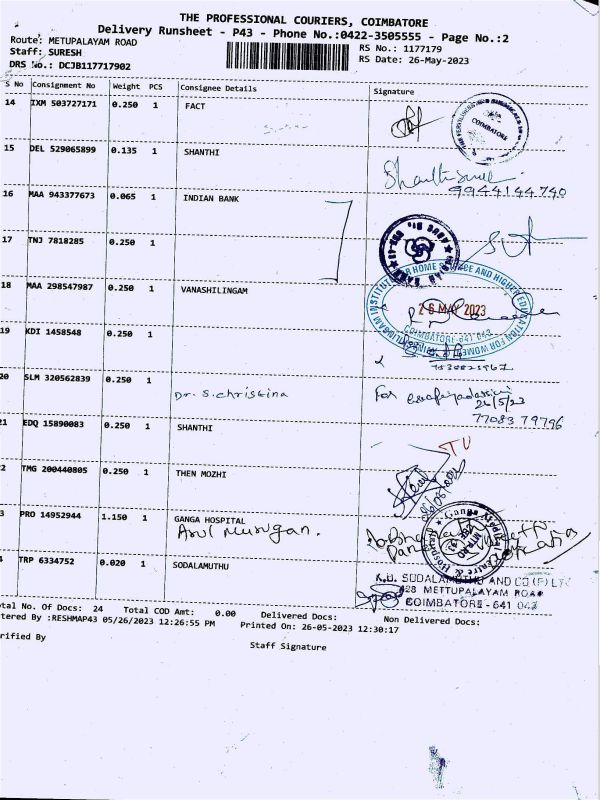 THE PROFESSIONAL COURIERS, COIMBATORE
Delivery Runsheet - P43 - Phone No.:0422-3505555 - Page No.:2
Route: METUPALAYAM ROAD
RS No.: 1177179
Staff: SURESH
RS Date: 26-May-2023
DRS No.: DCJB117717902
S No Consignment No Weight PCS Consignee Details Signature
14 IXM 503727171 0.250 1 FACT
COIMBATORE
15 DEL 529065899 0.135 1 SHANTHI
9944144740
16 MAA 943377673 0.065 1 INDIAN BANK
17 TNJ 7818285 0.250 1
18 MAA 298547987 0.250 1 VANASHILINGAM
FOR HOME SCIENCE AND HIGHER EDUCATION FOR WOMEN
26 MAY 2023
COIMBATORE-641 043
19 KDI 1458548 0.250 1
20 SLM 320562839 0.250 1
Dr. S. christina
For
26/5/23
77083 79796
21 EDQ 15890083 0.250 1 SHANTHI
2 TMG 200440805 0.250 1 THEN MOZHI
3 PRO 14952944 1.150 1 GANGA HOSPITAL
Arul Murugan.
Ganga Medical Centre & Hospitals
4 TRP 6334752 0.020 1 SODALAMUTHU
K.B. SODALAMUTHU AND CO (P) LTD
828 METTUPALAYAM ROAD
COIMBATORE - 641 043
otal No. Of Docs: 24 Total COD Amt: 0.00 Delivered Docs: Non Delivered Docs:
tered By :RESHMAP43 05/26/2023 12:26:55 PM Printed On: 26-05-2023 12:30:17
rified By
Staff Signature